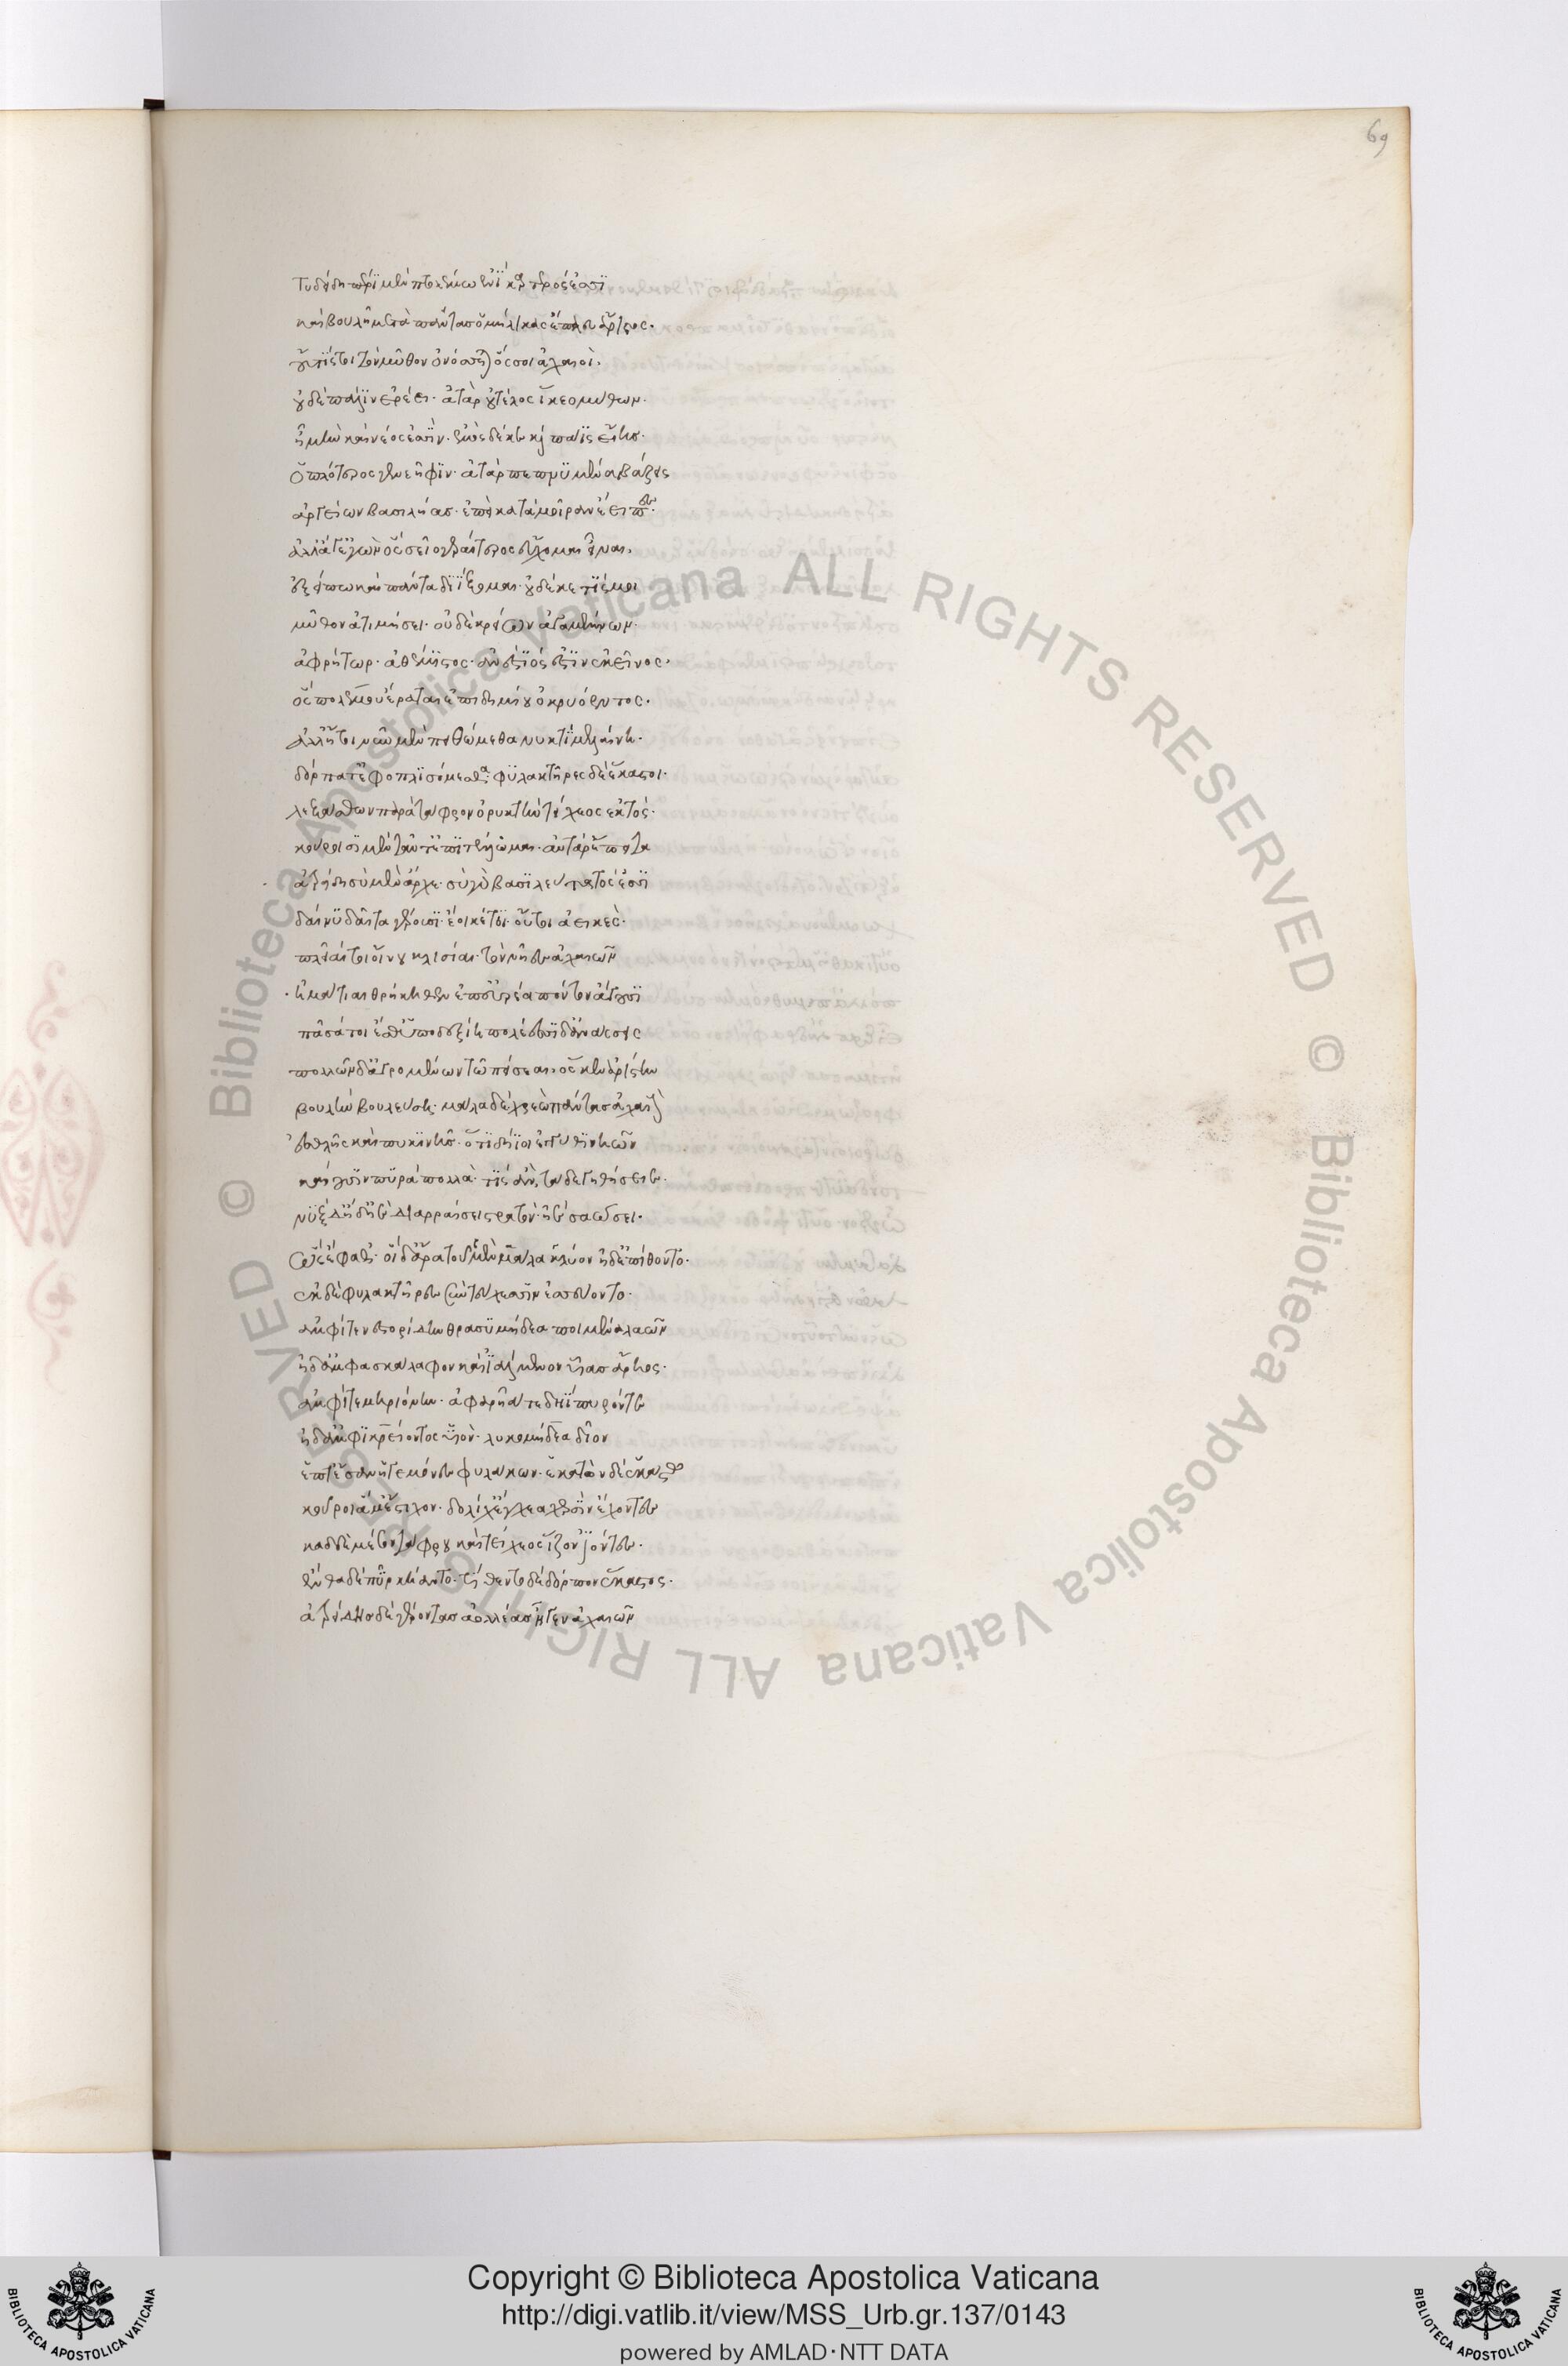 69
Τυδείδη περὶ μὲν πολέμω ἔνι καρτερός ἐσσι
καὶ βουλῆ μετὰ πάντας ὁμήλικας ἔπλευ ἄριστος.
οὔτίς τοι τὸν μῦθον ὀνόσσεται ὅσσοι ἀχαιοὶ.
οὐδὲ πάλιν ἐρέει. ἀτὰρ οὐ τέλος ἵκεο μύθων.
ἦ μὲν καὶ νέος ἐσσὶν. ἐμὸς δέ κε καὶ πάϊς εἴης.
ὁπλότατος γενεῆφιν. ἀτὰρ πεπνυμένα βάζεις
ἀργείων βασιλῆας. ἐπεὶ κατὰ μοῖραν ἔειπες.
ἀλλ' ἄγ' ἐγὼν ὃς σεῖο γεραίτερος εὔχομαι εἶναι.
ἐξείπω καὶ πάντα διΐξομαι. οὐδέ κε τίς μοι
μῦθον ἀτιμήσει. οὐδὲ κρείων ἀγαμέμνων.
ἀφρήτωρ. ἀθέμιστος. ἀνέστιός ἐστιν ἐκεῖνος.
ὃς πολέμου ἔραται ἐπιδημίου ὀκρυόεντος.
ἀλλ' ἤτοι νῦν μὲν πειθώμεθα νυκτὶ μελαίνη.
δόρπα τ' ἐφοπλισόμεσθα. φυλακτῆρες δὲ ἕκαστοι.
λεξάσθων παρὰ τάφρον ὀρυκτὴν τείχεος ἐκτός.
κούροισι μὲν ταῦτ' ἐπιτέλλομαι. αὐτὰρ ἔπειτα
ἀτρείδη σὺ μὲν ἄρχε. σὺ γὰρ βασιλεύτατός ἐσσι
δαίνυ δαῖτα γέρουσι. ἔοικέ τοι. οὔτοι ἀεικές.
πλεῖαί τοι οἴνου κλισίαι. τὸν νῆες ἀχαιῶν
ἠμάτιαι θρήκηθεν ἐπ' εὐρέα πόντον ἄγουσι
πᾶσά τοί ἐσθ' ὑποδεξίη πολέεσσι δ' ἀνάσσεις
πολλῶν δ' ἀγρομένων τῶ πείσεαι. ὅς κεν ἀρίστην
βουλὴν βουλεύση. μάλα δὲ χρεὼ πάντας ἀχαιοὺς
ἐσθλῆς καὶ πυκινῆς. ὅτι δήϊοι ἐγγύθι νηῶν
καίουσιν πυρὰ πολλὰ. τίς ἂν τάδε γηθήσειε.
νὺξ δ' ἥδ' ἠὲ διαρραίσει στρατὸν. ἠὲ σαώσει.
ὣς ἔφατ'. οἱ δ' ἄρα τοῦ μὲν μάλα κλύον ἠδ' ἐπίθοντο.
ἐκ δὲ φυλακτῆρες σὺν τεύχεσιν ἐσσεύοντο.
ἀμφί τε νεστορίδην θρασυμήδεα ποιμένα λαῶν
ἠδ' ἀμφ' ἀσκάλαφον καὶ ἰάλμενον υἷας ἄρηος.
ἀμφί τε μηριόνην. ἀφαρῆά τε δηΐπυρόν τε
ἠδ' ἀμφὶ κρείοντος υἱὸν. λυκομήδεα δῖον
ἕπτ' ἔσαν ἡγεμόνες φυλάκων. ἑκατὸν δὲ ἑκάστω
κοῦροι ἅμ' ἔστιχον. δολίχ' ἔγχεα χερσὶν ἔχοντες
καδδὲ μέσον τάφρου καὶ τείχεος ἷζον ἰόντες.
ἔνθα δὲ πῦρ κήαντο. τίθεντο δὲ δόρπον ἕκαστος.
ἀτρείδης δὲ γέροντας ἀολλέας ἦγεν ἀχαιῶν
Copyright © Biblioteca Apostolica Vaticana
http://digi.vatlib.it/view/MSS_Urb.gr.137/0143
powered by AMLAD·NTT DATA
BIBLIOTECA APOSTOLICA VATICANA
BIBLIOTECA APOSTOLICA VATICANA
© Biblioteca Apostolica Vaticana ALL RIGHTS RESERVED © Biblioteca Apostolica Vaticana ALL RIGHTS RESERVED